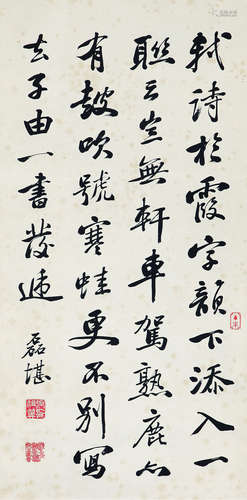 軾詩於霞字韻下添入一
聯云豈無軒車駕熟鹿亦
有鼓吹號寒蛙更不別寫
去子由一書發遞
磊堪